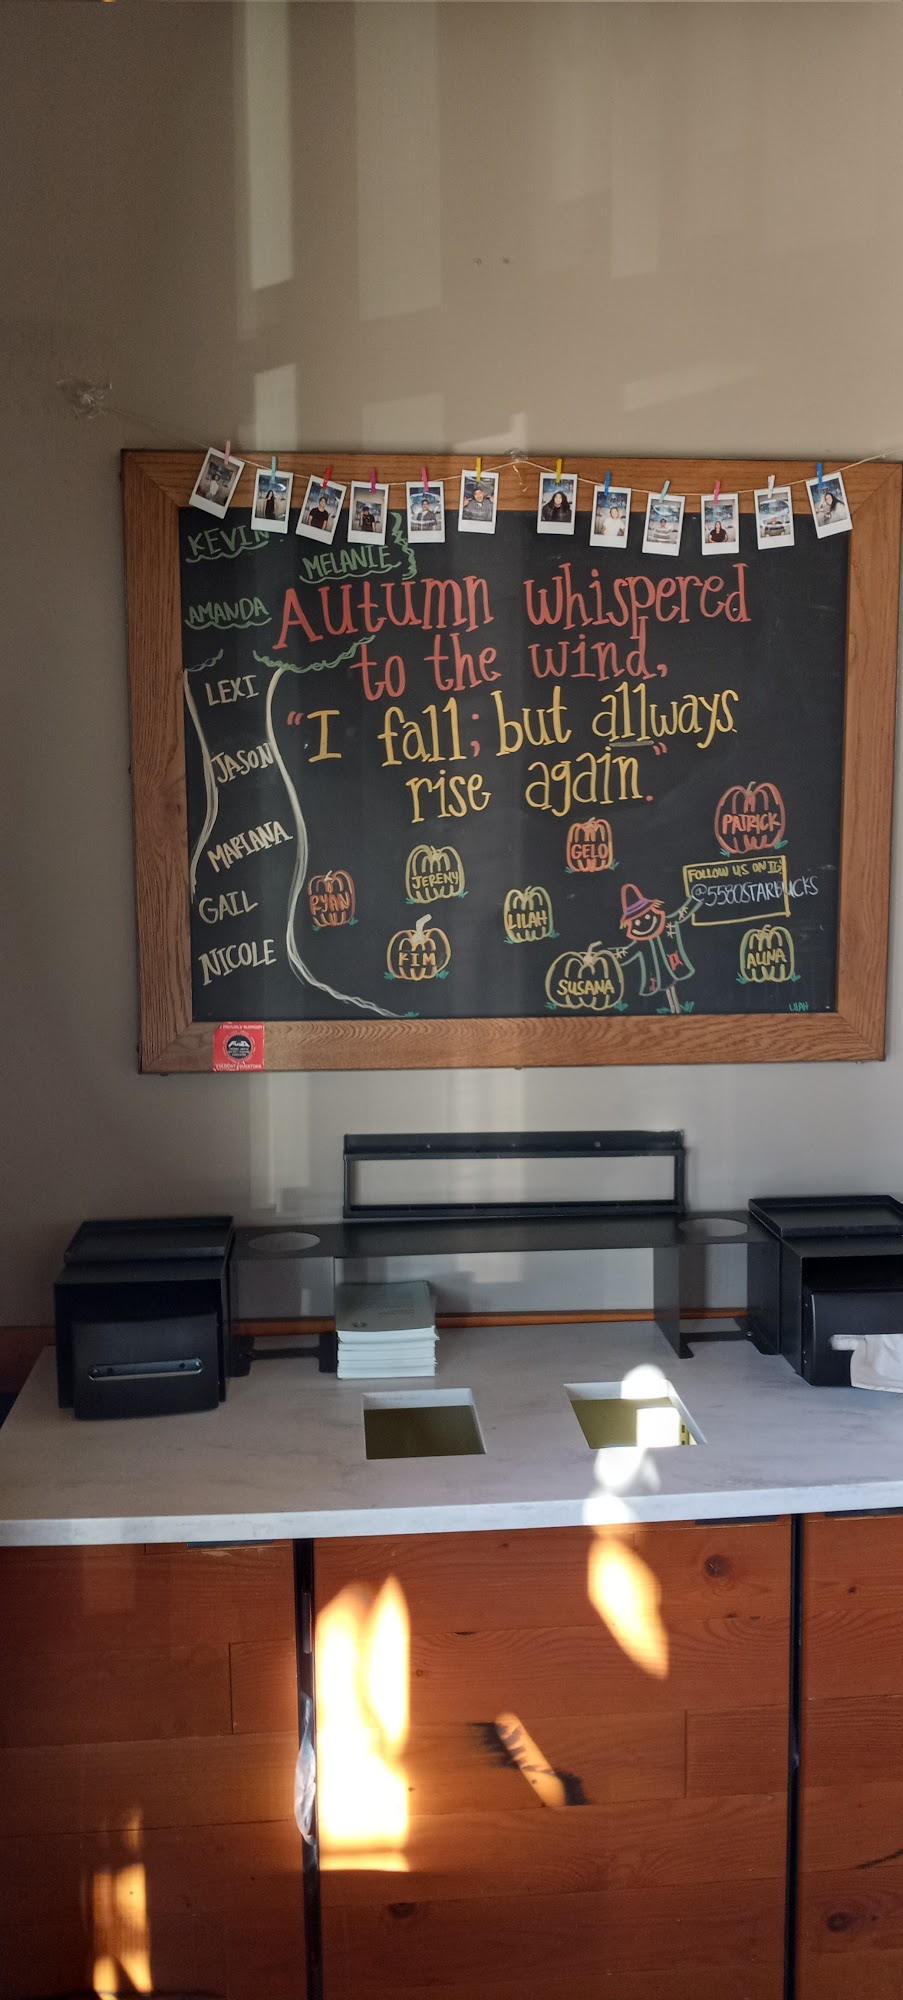 KEVIN
MELANIE
AMANDA
Autumn whispered
to the wind,
"I fall; but allways
rise again."
LEXI
JASON
MARIANA
GAIL
NICOLE
RYAN
JEREMY
KIM
LILAH
GELO
SUSANA
PATRICK
FOLLOW US ON IG
@5580STARBUCKS
ALINA
LILAH